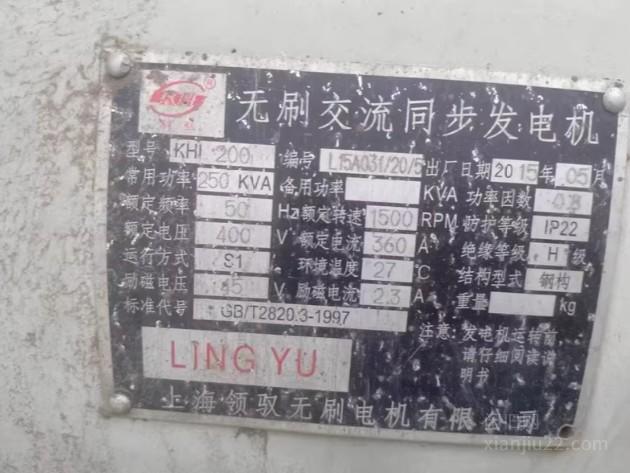 KHI
无刷交流同步发电机
型号 KHI 200 编号 L15A031/20/5 出厂日期 2015年 05月
常用功率 250 KVA 备用功率 KVA 功率因数 0.8
额定频率 50 Hz 额定转速 1500 RPM 防护等级 IP22
额定电压 400 V 额定电流 360 A 绝缘等级 H 级
运行方式 S1 环境温度 27 C 结构型式 钢构
励磁电压 45 V 励磁电流 2.3 A 重量 kg
标准代号 GB/T2820.3-1997
注意:发电机运转前
请仔细阅读说
明书
LING YU
上海领驭无刷电机有限公司
xianjiu22.com